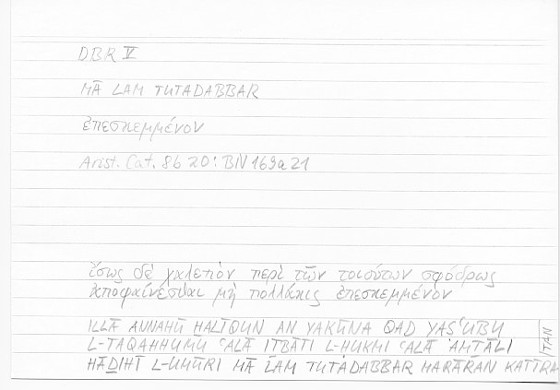 DBR V
MĀ LAM TUTADABBAR
ἐπεσκεμμένον
Arist. Cat. 8b 20: BN 169a21
ἴσως δὲ χαλεπὸν περὶ τῶν τοιούτων σφόδρως
ἀποφαίνεσθαι μὴ πολλάκις ἐπεσκεμμένον
ILLĀ ANNAHŪ ḪALĪQUN AN YAKŪNA QAD YAṢʿUBU
L-TAQAḤḤUMU ʿALĀ IṮBĀTI L-ḤUKMI ʿALĀ AMṮĀLI
HĀḎIHĪ L-UMŪRI MĀ LAM TUTADABBAR MARĀRAN KAṮĪRA
TAN